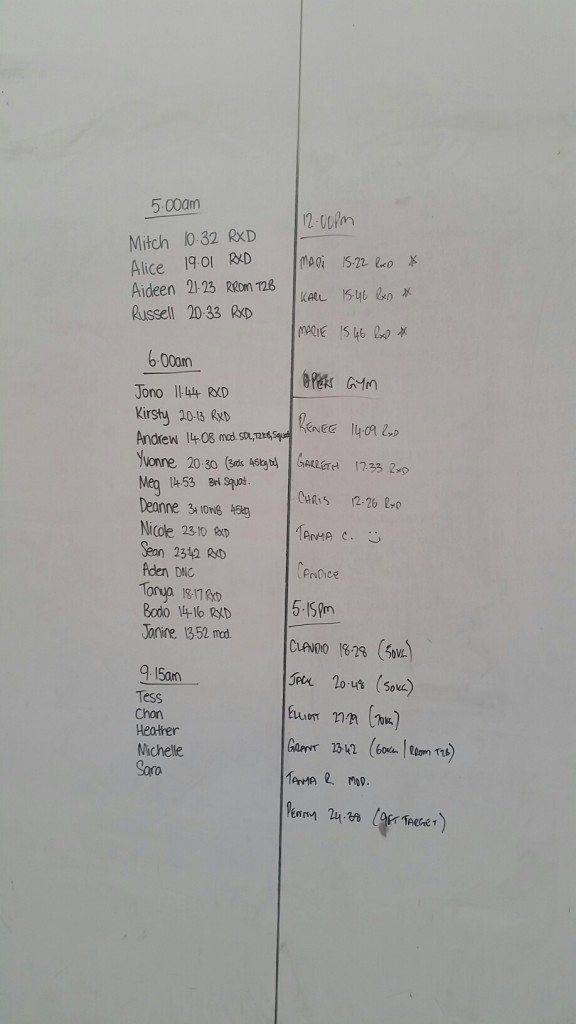 5.00am
Mitch 10.32 RXD
Alice 19.01 RXD
Aideen 21.23 RROM T2B
Russell 20.33 RXD
6.00am
Jono 11.44 RXD
Kirsty 20.13 RXD
Andrew 14.08 mod. SDL, Squat
Yvonne 20.30 (3rds 45kg
Meg 14.53 BW Squat.
Deanne 45kg
Nicole 23.10 RXD
Sean 23.42 RXD
Aden DNC
Tanya 18.17 RXD
Bodo 14.16 RXD
Janine 13.52 mod
9.15am
Tess
Chan
Heather
Michelle
Sara
12.00pm
MADI 15.22 RXD *
KARL 15.46 RXD *
MARIE 15.46 RXD *
OPEN GYM
RENEE 14.09 RXD
GARRETH 17.33 RXD
CHRIS 12.26 RXD
TANYA C. :)
CANDICE
5.15pm
CLAUDIO 18.28 (50KG)
JACK 20.48 (50KG)
ELLIOTT 27.29 (70KG)
GRANT 23.42 (60KG | RROM T2B)
TANYA R MOD.
PENNY 24.38 (9FT TARGET)